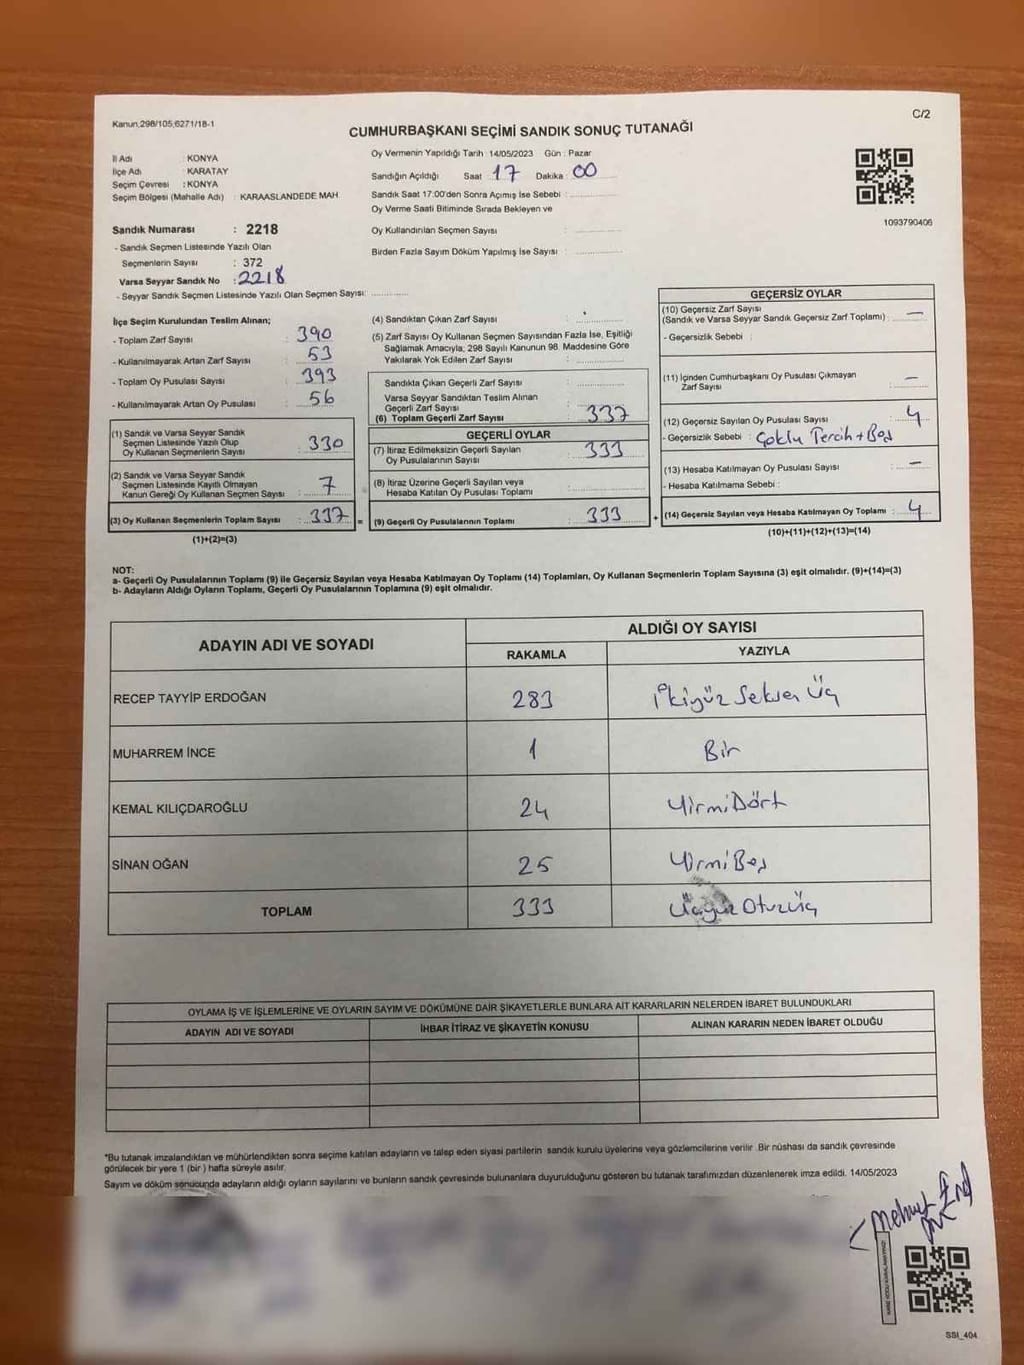 Kanun,298/105,6271/18-1
C/2
CUMHURBAŞKANI SEÇİMİ SANDIK SONUÇ TUTANAĞI
İl Adı : KONYA
İlçe Adı : KARATAY
Seçim Çevresi : KONYA
Seçim Bölgesi (Mahalle Adı) : KARAASLANDEDE MAH
Sandık Numarası : 2218
- Sandık Seçmen Listesinde Yazılı Olan
Seçmenlerin Sayısı : 372
Varsa Seyyar Sandık No : 2218
- Seyyar Sandık Seçmen Listesinde Yazılı Olan Seçmen Sayısı:
Oy Vermenin Yapıldığı Tarih : 14/05/2023 Gün : Pazar
Sandığın Açıldığı Saat 17 Dakika 00
Sandık Saat 17:00'den Sonra Açımış İse Sebebi :
Oy Verme Saati Bitiminde Sırada Bekleyen ve
Oy Kullandırılan Seçmen Sayısı :
Birden Fazla Sayım Döküm Yapılmış İse Sayısı :
1093790406
İlçe Seçim Kurulundan Teslim Alınan;
- Toplam Zarf Sayısı : 390
- Kullanılmayarak Artan Zarf Sayısı : 53
- Toplam Oy Pusulası Sayısı : 393
- Kullanılmayarak Artan Oy Pusulası : 56
(1) Sandık ve Varsa Seyyar Sandık
Seçmen Listesinde Yazılı Olup
Oy Kullanan Seçmenlerin Sayısı : 330
(2) Sandık ve Varsa Seyyar Sandık
Seçmen Listesinde Kayıtlı Olmayan
Kanun Gereği Oy Kullanan Seçmen Sayısı : 7
(3) Oy Kullanan Seçmenlerin Toplam Sayısı : 337 =
(1)+(2)=(3)
(4) Sandıktan Çıkan Zarf Sayısı :
(5) Zarf Sayısı Oy Kullanan Seçmen Sayısından Fazla İse, Eşitliği
Sağlamak Amacıyla, 298 Sayılı Kanunun 98. Maddesine Göre
Yakılarak Yok Edilen Zarf Sayısı :
Sandıkta Çıkan Geçerli Zarf Sayısı :
Varsa Seyyar Sandıktan Teslim Alınan
Geçerli Zarf Sayısı :
(6) Toplam Geçerli Zarf Sayısı : 337
GEÇERLİ OYLAR
(7) İtiraz Edilmeksizin Geçerli Sayılan
Oy Pusulalarının Sayısı : 333
(8) İtiraz Üzerine Geçerli Sayılan veya
Hesaba Katılan Oy Pusulası Toplamı :
(9) Geçerli Oy Pusulalarının Toplamı : 333 +
GEÇERSİZ OYLAR
(10) Geçersiz Zarf Sayısı
(Sandık ve Varsa Seyyar Sandık Geçersiz Zarf Toplamı) : —
- Geçersizlik Sebebi :
(11) İçinden Cumhurbaşkanı Oy Pusulası Çıkmayan
Zarf Sayısı : —
(12) Geçersiz Sayılan Oy Pusulası Sayısı : 4
- Geçersizlik Sebebi : Çoklu Tercih + Boş
(13) Hesaba Katılmayan Oy Pusulası Sayısı : —
- Hesaba Katılmama Sebebi :
(14) Geçersiz Sayılan veya Hesaba Katılmayan Oy Toplamı : 4
(10)+(11)+(12)+(13)=(14)
NOT:
a- Geçerli Oy Pusulalarının Toplamı (9) ile Geçersiz Sayılan veya Hesaba Katılmayan Oy Toplamı (14) Toplamları, Oy Kullanan Seçmenlerin Toplam Sayısına (3) eşit olmalıdır. (9)+(14)=(3)
b- Adayların Aldığı Oyların Toplamı, Geçerli Oy Pusulalarının Toplamına (9) eşit olmalıdır.
ADAYIN ADI VE SOYADI
ALDIĞI OY SAYISI
RAKAMLA YAZIYLA
RECEP TAYYİP ERDOĞAN 283 İkiyüz Seksen Üç
MUHARREM İNCE 1 Bir
KEMAL KILIÇDAROĞLU 24 Yirmi Dört
SİNAN OĞAN 25 Yirmi Beş
TOPLAM 333 Üçyüz Otuz Üç
OYLAMA İŞ VE İŞLEMLERİNE VE OYLARIN SAYIM VE DÖKÜMÜNE DAİR ŞİKAYETLERLE BUNLARA AİT KARARLARIN NELERDEN İBARET BULUNDUKLARI
ADAYIN ADI VE SOYADI İHBAR İTİRAZ VE ŞİKAYETİN KONUSU ALINAN KARARIN NEDEN İBARET OLDUĞU
*Bu tutanak imzalandıktan ve mühürlendikten sonra seçime katılan adayların ve talep eden siyasi partilerin sandık kurulu üyelerine veya gözlemcilerine verilir. Bir nüshası da sandık çevresinde
görülecek bir yere 1 (bir ) hafta süreyle asılır.
Sayım ve döküm sonucunda adayların aldığı oyların sayılarını ve bunların sandık çevresinde bulunanlara duyurulduğunu gösteren bu tutanak tarafımızdan düzenlenerek imza edildi. 14/05/2023
Mehmet
SSI_404